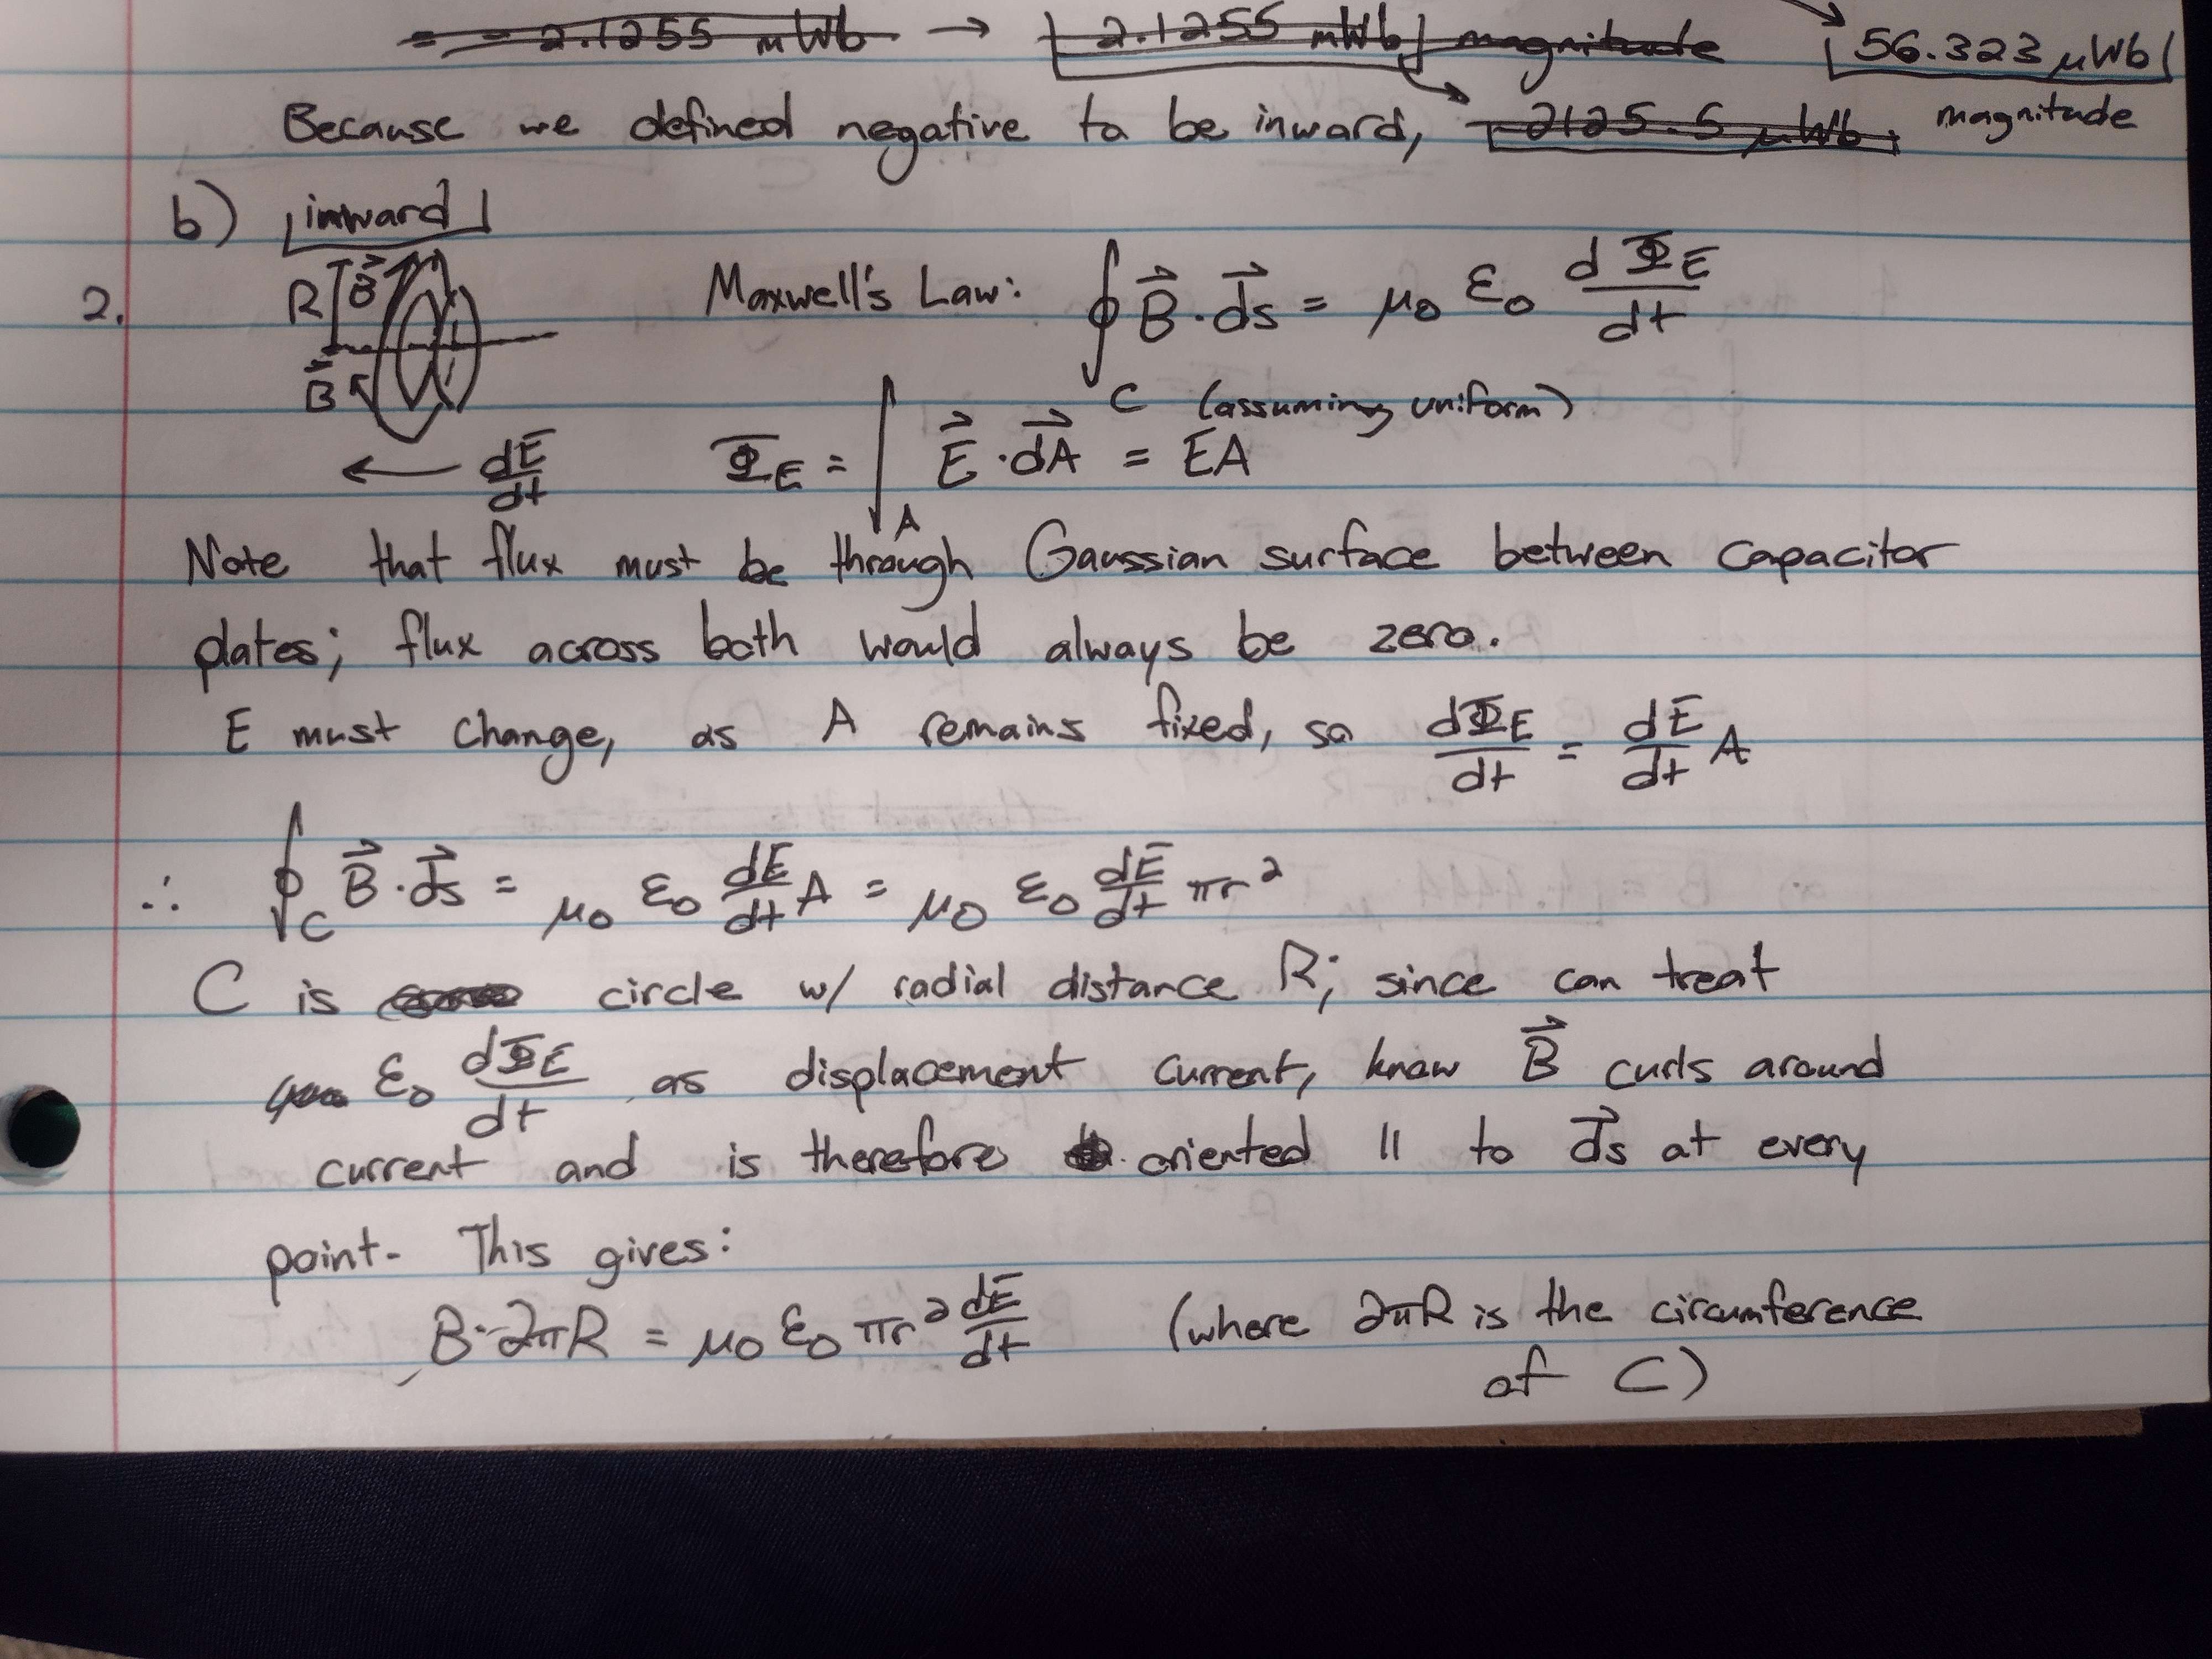 = -2.1255 mWb → 2.1255 mWb magnitude 56.323 μWb
Because we defined negative to be inward, 2125.5 μWb. magnitude
b) inward
2. R B⃗ Maxwell's Law: ∮_C B⃗ · ds⃗ = μ₀ ε₀ dΦE/dt
B⃗
(assuming uniform)
← dE/dt ΦE = ∫_A E⃗ · dA⃗ = EA
Note that flux must be through Gaussian surface between capacitor
plates; flux across both would always be zero.
E must change, as A remains fixed, so dΦE/dt = dE/dt A
∴ ∮_C B⃗ · ds⃗ = μ₀ ε₀ dE/dt A = μ₀ ε₀ dE/dt πr²
C is circle w/ radial distance R; since can treat
ε₀ dΦE/dt as displacement current, know B⃗ curls around
current and is therefore oriented || to ds⃗ at every
point. This gives:
B·2πR = μ₀ ε₀ πr² dE/dt (where 2πR is the circumference
of C)